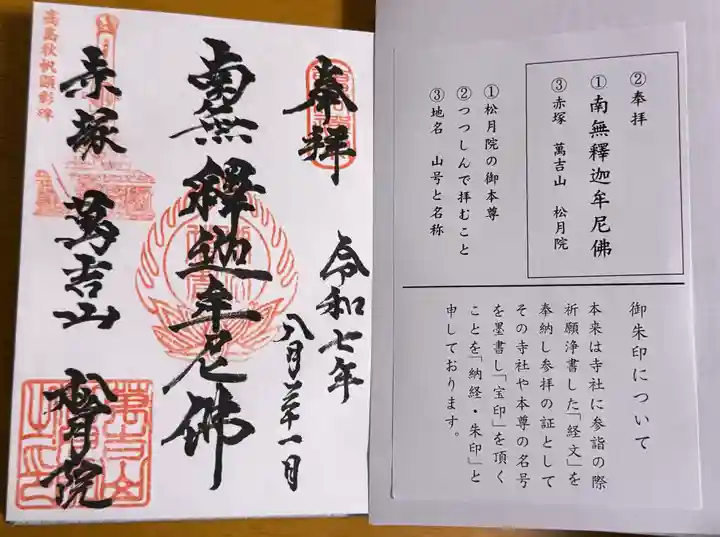 奉拝
令和七年
八月
一日
南無釋迦牟尼佛
赤塚 萬吉山 松月院
高島秋帆顕彰碑
②奉拝
①南無釋迦牟尼佛
③赤塚 萬吉山 松月院
①松月院の御本尊
②つつしんで拝むこと
③地名 山号と名称
御朱印について
本来は寺社に参詣の際
祈願浄書した「経文」を
奉納し参拝の証として
その寺社や本尊の名号
を墨書し「宝印」を頂く
ことを「納経・朱印」と
申しております。